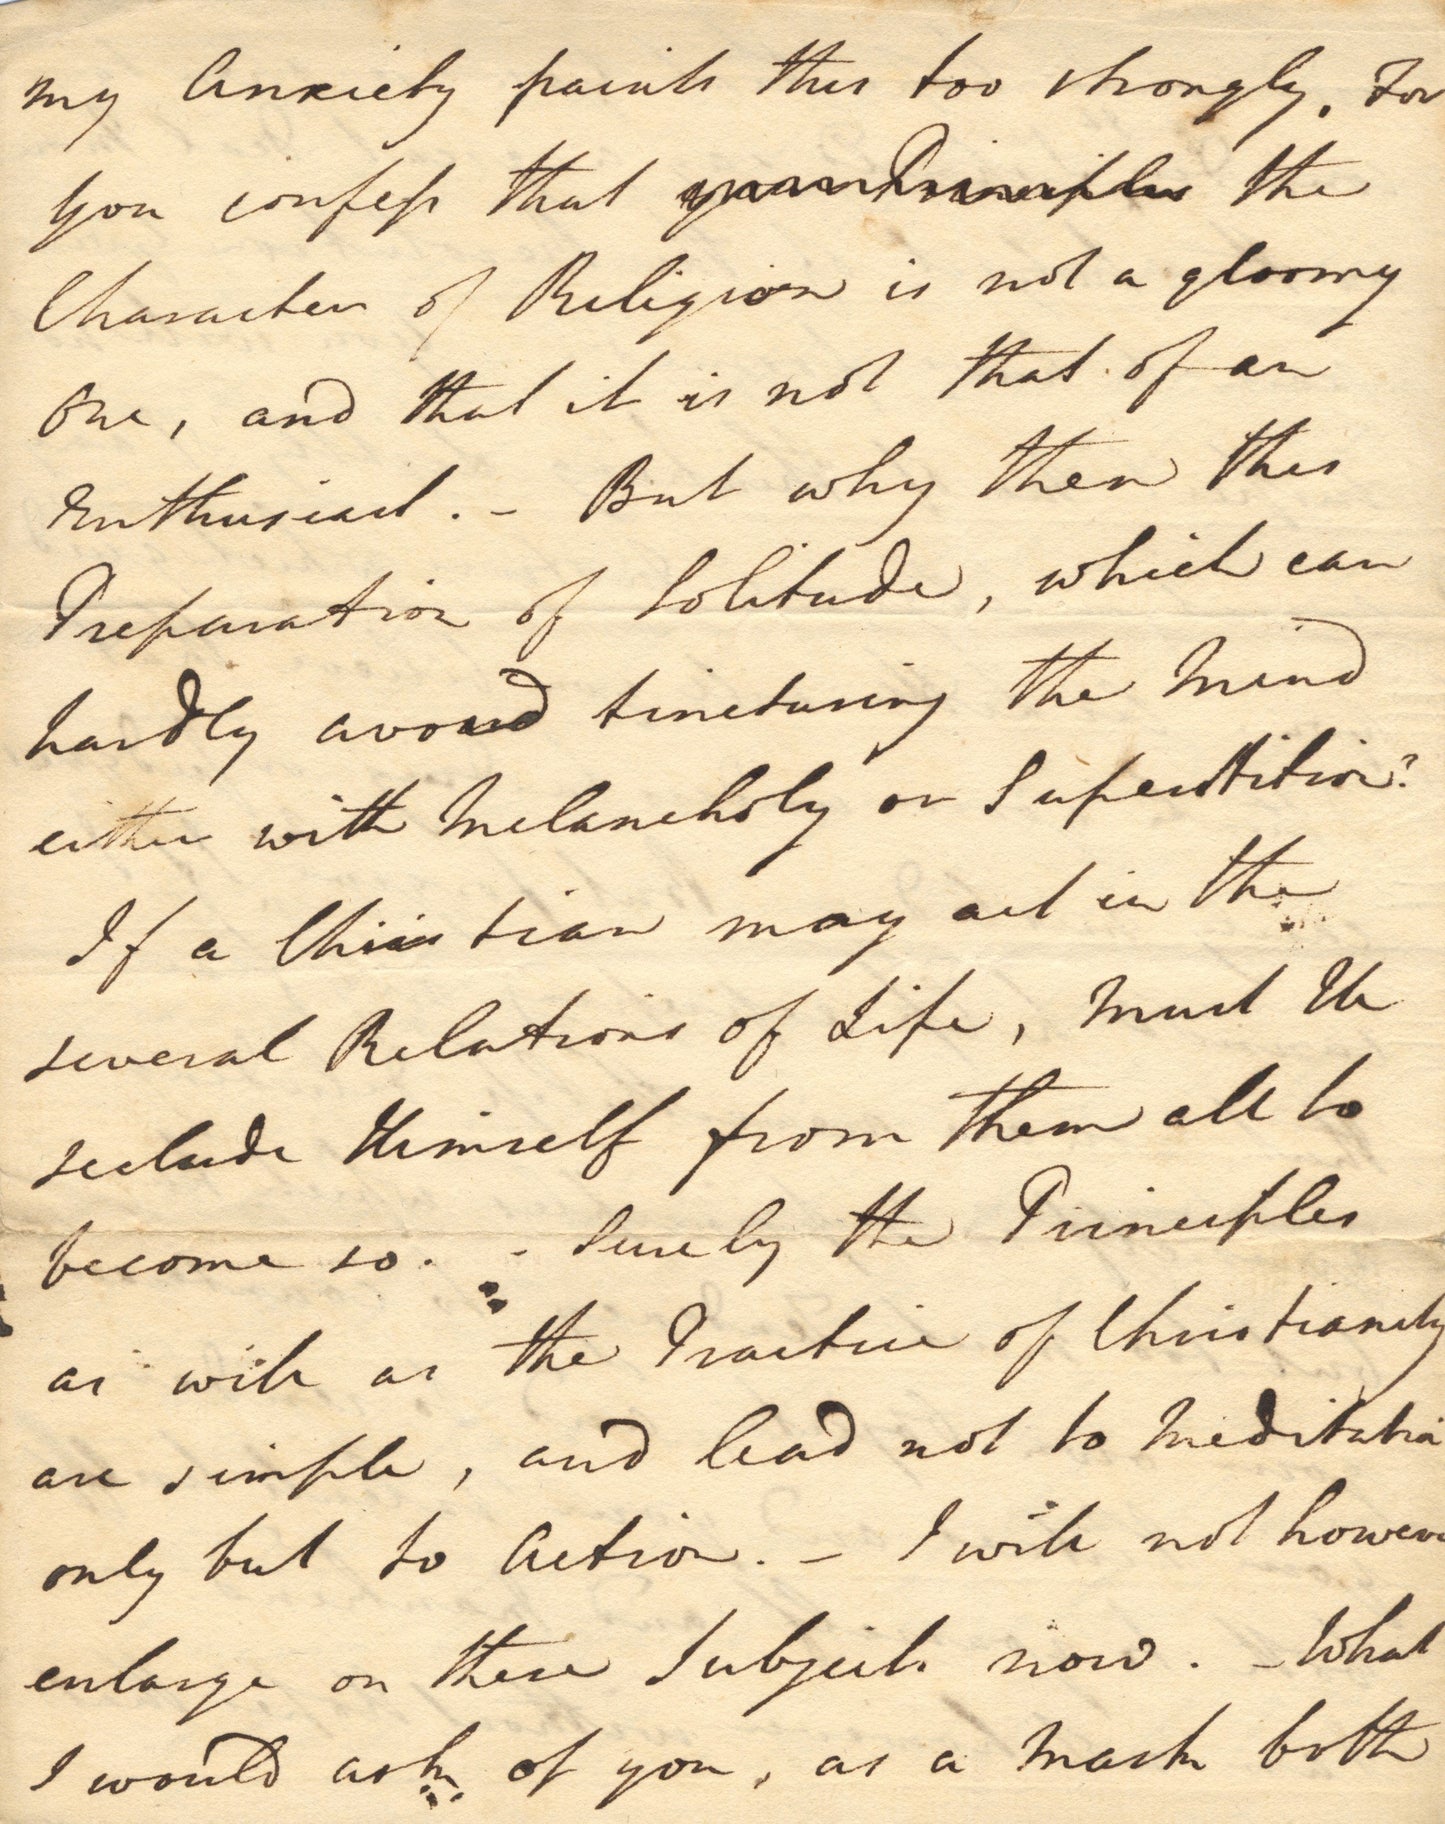 my Anxiety paints this too strongly. For
you confess that your Principles the
Character of Religion is not a gloomy
One, and that it is not that of an
Enthusiast. - But why then this
Preparation of Solitude, which can
hardly avoid tincturing the Mind
either with Melancholy or Superstition?
If a Christian may act in the
several Relations of Life, must He
seclude Himself from them all to
become so. - Surely the Principles
as well as the Practice of Christianity
are simple, and lead not to Meditation
only but to Action. - I will not however
enlarge on these Subjects now. - What
I would ask of you, as a Mark both